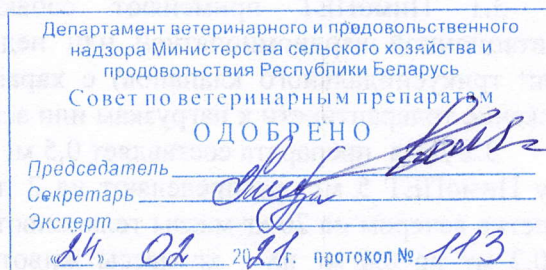 Департамент ветеринарного и продовольственного
надзора Министерства сельского хозяйства и
продовольствия Республики Беларусь
Совет по ветеринарным препаратам
ОДОБРЕНО
Председатель
Секретарь
Эксперт
«24» 02 2021г. протокол № 113